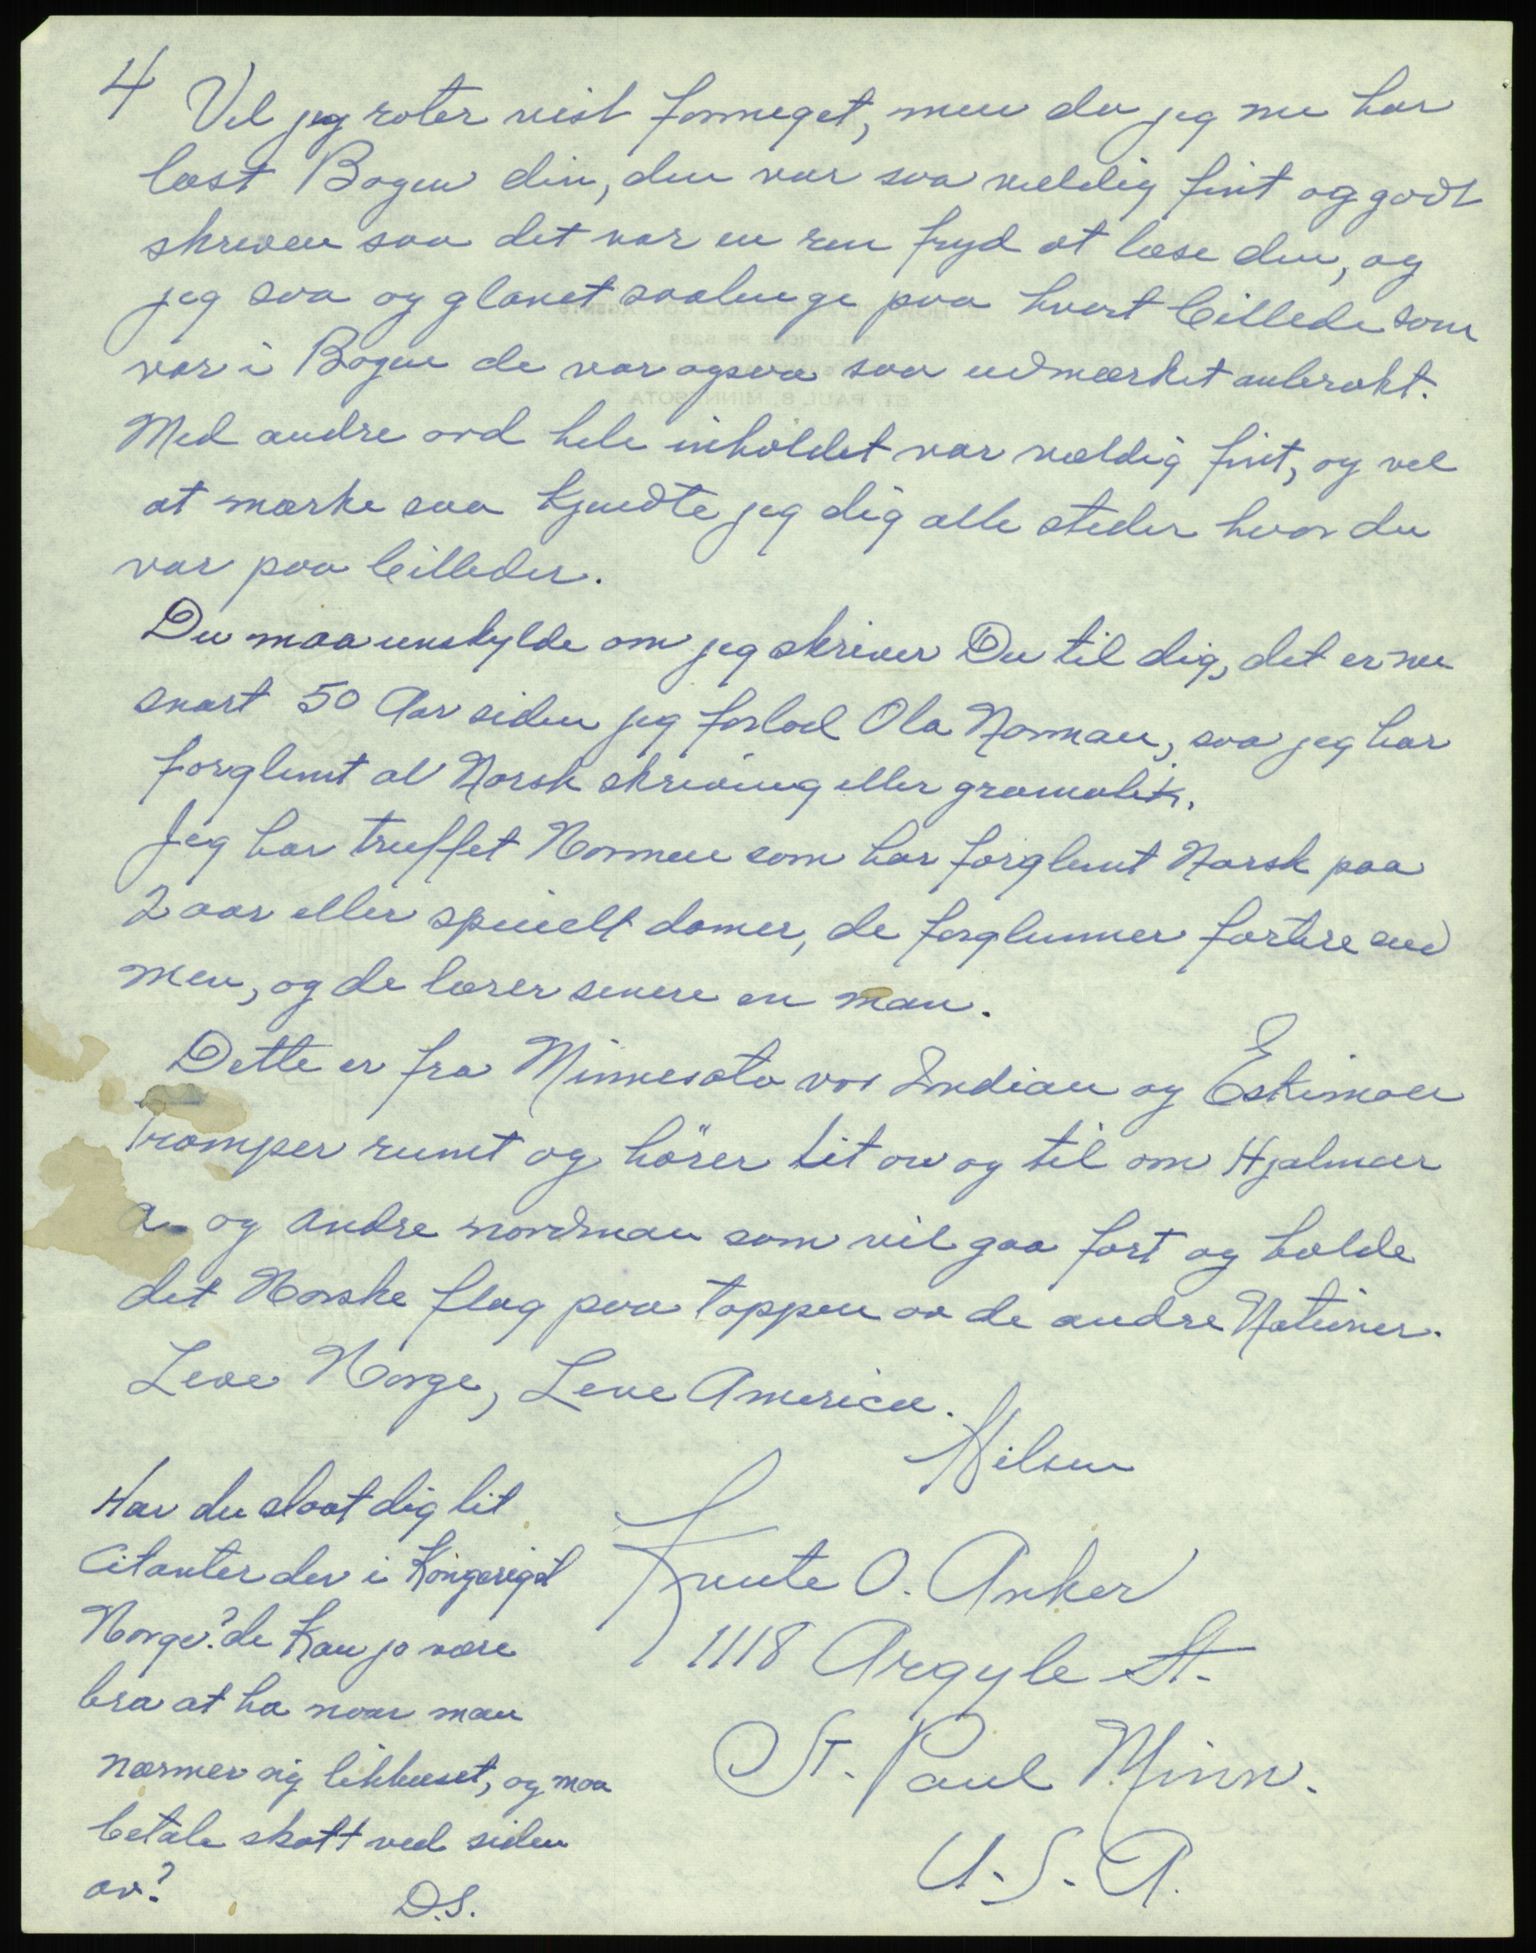 4
Vel jeg roter vist formeget, men da jeg nu har
læst Bogen din, den var saa veldig fint og godt
skreven saa det var en ren fryd at læse den, og
jeg saa og glanet saalenge paa hvert billede som
var i Bogen de var ogsaa saa udmærket anbrakt.
Med andre ord hele inholdet var vældig fint, og vel
at mærke saa kjendte jeg dig alle steder hvor du
var paa billeder.
Du maa unskylde om jeg skriver Du til dig, det er nu
snart 50 Aar siden jeg forlod Ola Norman, saa jeg har
forglemt al Norsk skriving eller gramatik.
Jeg har truffet Normen som har forglemt Norsk paa
2 aar eller spicielt damer, de forglemmer fortere end
men, og de lærer senere en man.
Dette er fra Minnesota vor Indian og Eskimoer
Tramper runt og hörer lit av og til om Hjalmar
og andre nordman som vil gaa fort og holde
det Norske flag paa toppen av de andre Nationer.
Leve Norge, Leve America.
Hilsen
Knute O. Anker
1118 Argyle St.
St. Paul Minn.
U.S.A.
Har du slaat dig lit
Citanter der i Kongeriget
Norge? de kan jo være
bra at ha naar man
nærmer sig likhuset, og maa
betale skatt ved siden
av?
D.S.